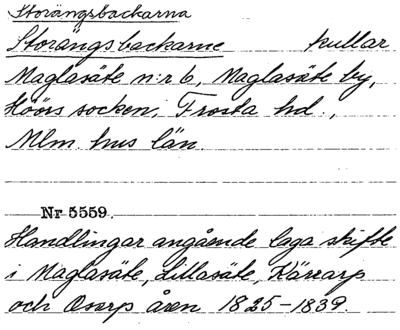 Storängsbackarna
Storängsbackarne kullar
Maglasäte n:r 6, Maglasäte by,
Höörs socken, Frosta hd.,
Mlm. hus län.
Nr 5559.
Handlingar angående laga skifte
i Maglasäte, Lillasäte, Kärrarp
och Oserp åren 1825-1839.